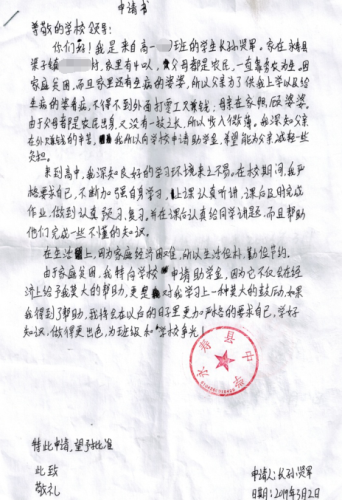 申请书
尊敬的学校领导:
你们好！我是来自高一 班的学生长孙恩军。家在永县
梁子镇 村,家里有4口人,父母都是农民,一直靠务农为生。因
家庭贫困,而且家里还有生病的婆婆,所以父亲为了供我上学以及给
生病的婆看病,不得不到外面打零工只赚钱,母亲在家照顾婆婆。
由于父母都是农民出身,又没有一技之长,所以收入微薄。我深知父亲
在外赚钱的辛苦, 我所以向学校申请助学金,希望能为父亲减轻一些
负担。
来到高中,我深知良好的学习环境来之不易。在校期间,我严
格要求自己,不断加强自身学习,上课认真听讲,课后及时完成
作业,做到认真预习,复习。并在课后认真给同学讲题,而且帮助
他们完成一些不懂的知识。
在生活上,因为家庭经济困难,所以生活俭朴,勤俭节约。
由于家贫困,我特向学校申请助学金,因为它不仅会在经
济上给予我莫大的帮助,更是对我学习上一种莫大的鼓励。如果
我得到了帮助,我将会在以后的日子里更加严格的要求自己,学好
知识,做得更出色,为班级和学校争光！
特此申请,望予批准
此致
敬礼
申请人:长孙恩军
日期:2019年3月2日